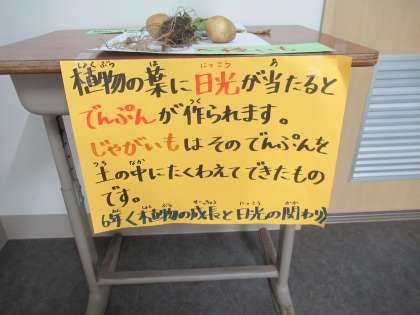 植物の葉に日光が当たると
でんぷんが作られます。
じゃがいもはそのでんぷんを
土の中にたくわえてできたもの
です。
6年〈植物の成長と日光の関わり〉